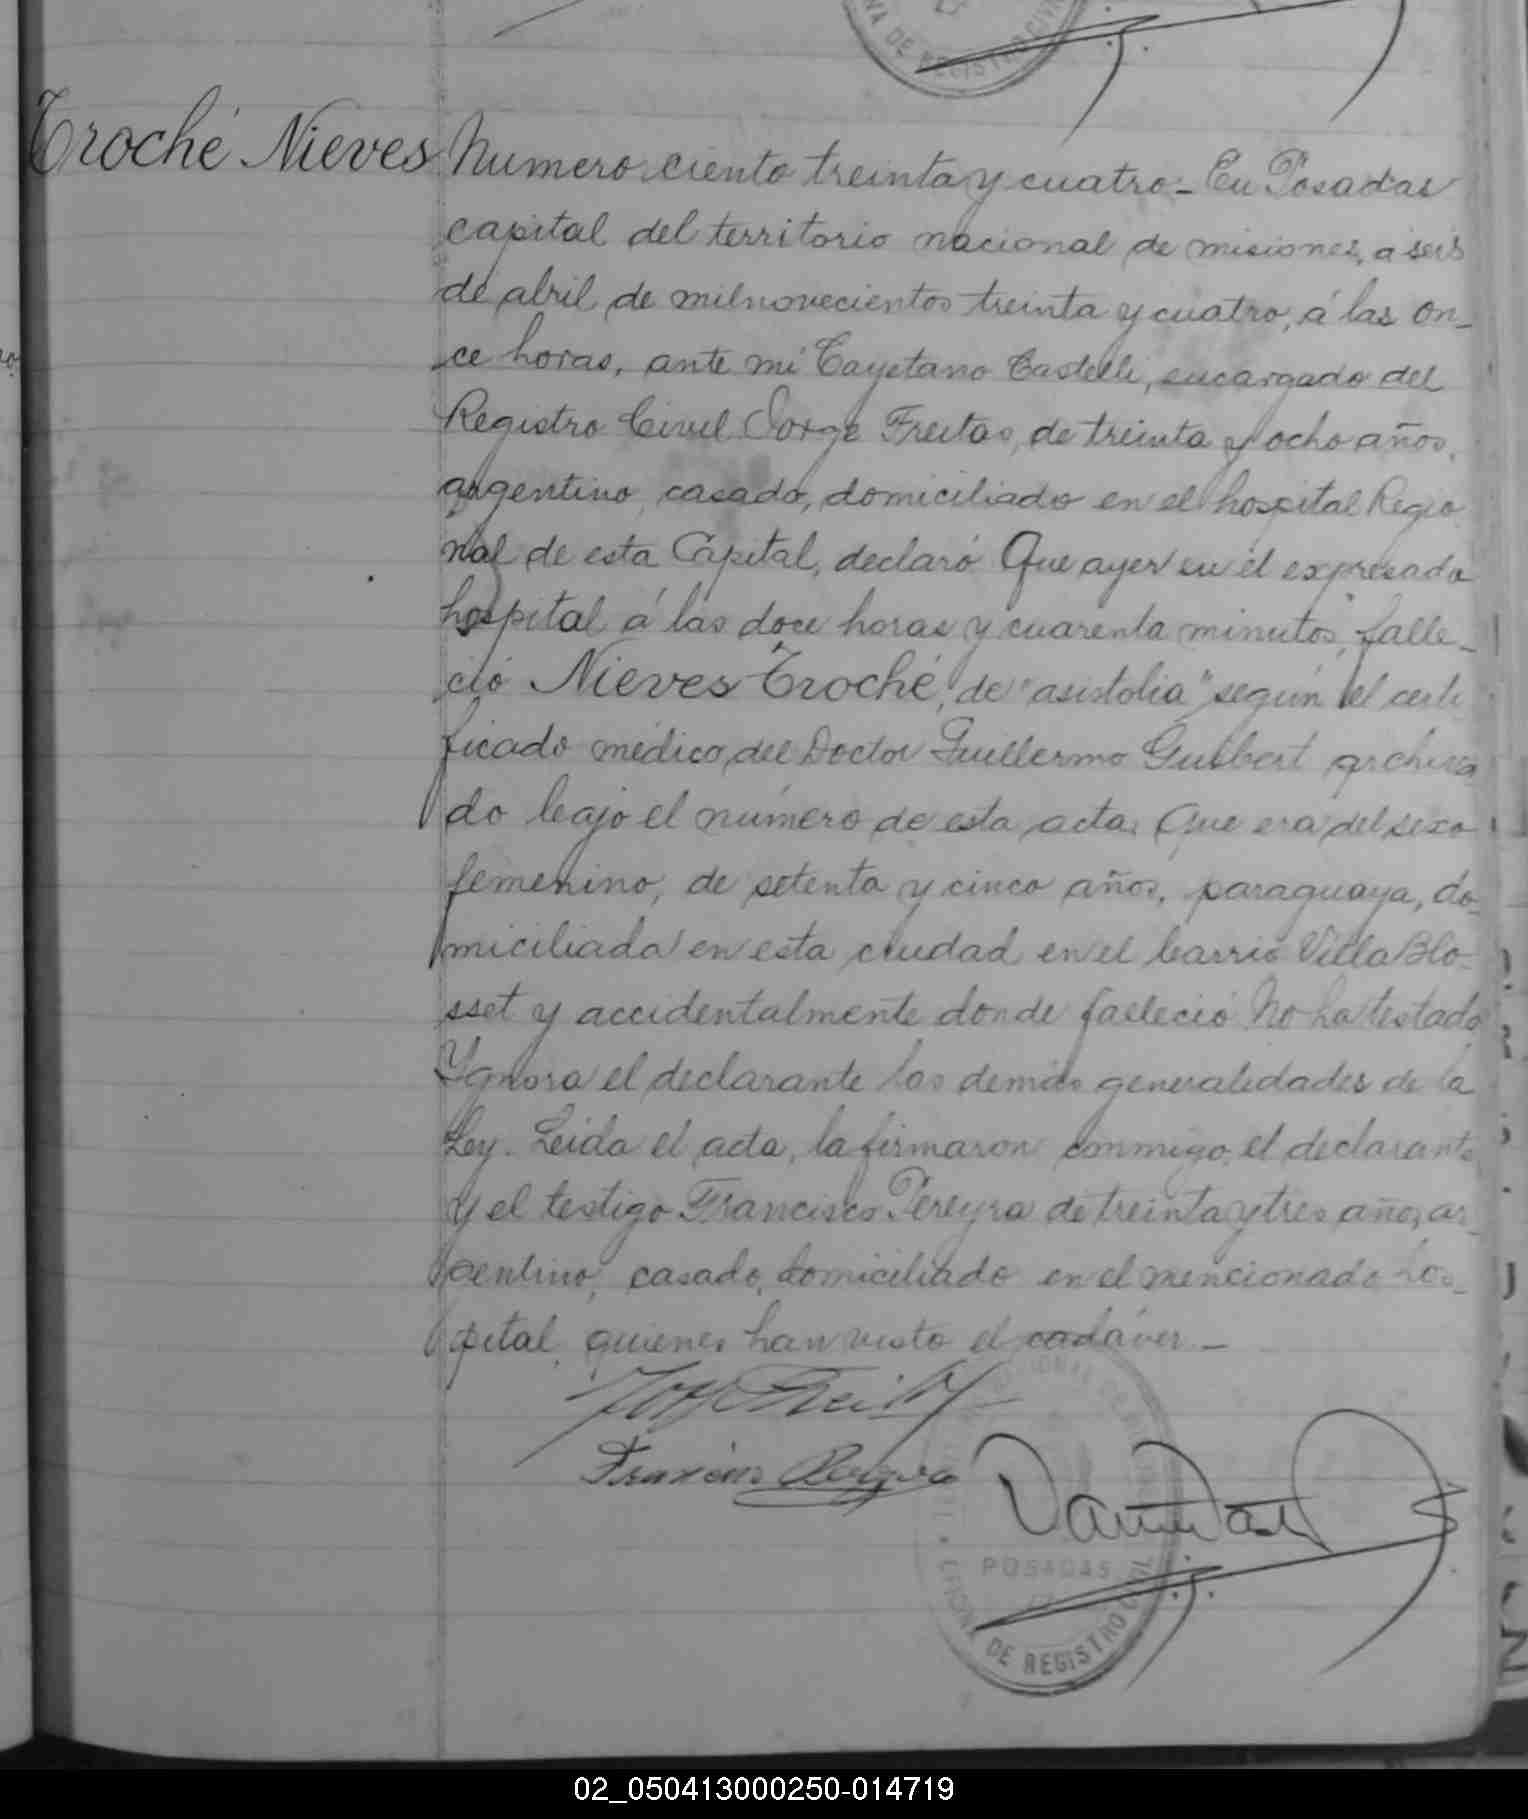 NA DE REGISTRO CIVIL
Troché Nieves
Numero ciento treinta y cuatro - En Posadas
capital del territorio nacional de misiones, a seis
de abril de milnovecientos treinta y cuatro, á las on-
ce horas, ante mi Cayetano Castelli, encargado del
Registro Civil Jorge Freitas, de treinta y ocho años,
argentino, casado, domiciliado en el hospital Regio
nal de esta Capital, declaró Que ayer en el expresado
hospital á las doce horas y cuarenta minutos, falle-
ció Nieves Troché, de "asistolia" según el certi
ficado médico del Doctor Guillermo Guilbert archiva
do bajo el número de esta acta. Que era del sexo
femenino, de setenta y cinco años, paraguaya, do-
miciliada en esta ciudad en el barrio Villa Blo-
sset y accidentalmente donde falleció No ha testado
Ygnora el declarante las demás generalidades de la
Ley. Leida el acta, la firmaron conmigo, el declarante
y el testigo Francisco Pereyra de treinta y tres años, ar-
gentino, casado, domiciliado en el mencionado hos-
pital, quienes han visto el cadáver. -
POSADAS
OFICINA DE REGISTRO CIVIL
02_050413000250-014719